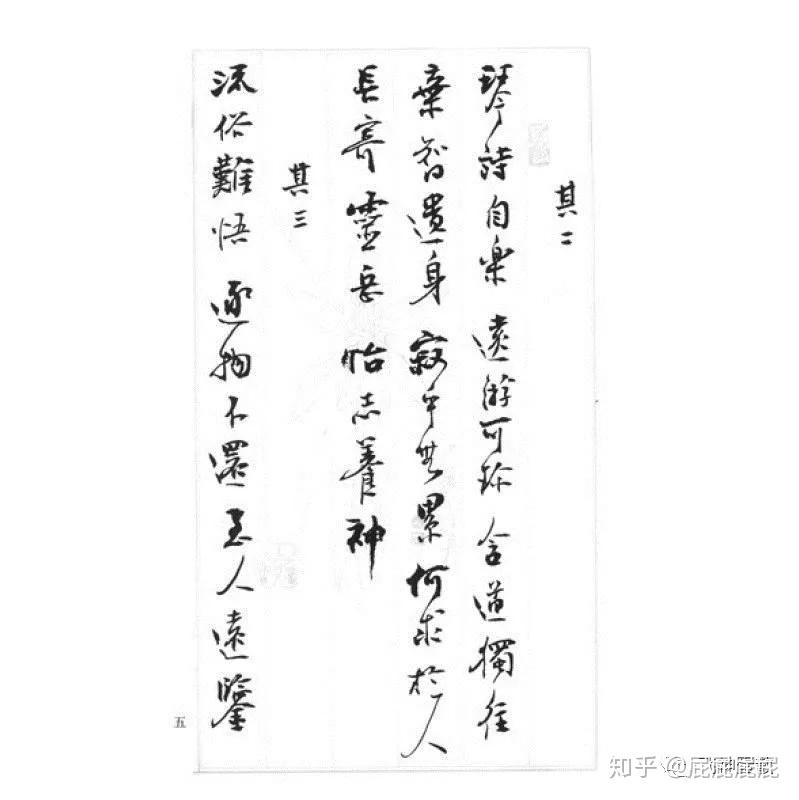 其二
琴詩自樂遠游可珎含道獨往
棄智遺身寂乎無累何求於人
長寄靈岳怡志養神
其三
流俗難悟逐物不還至人遠鑒
五
知乎 @屁屁屁屁